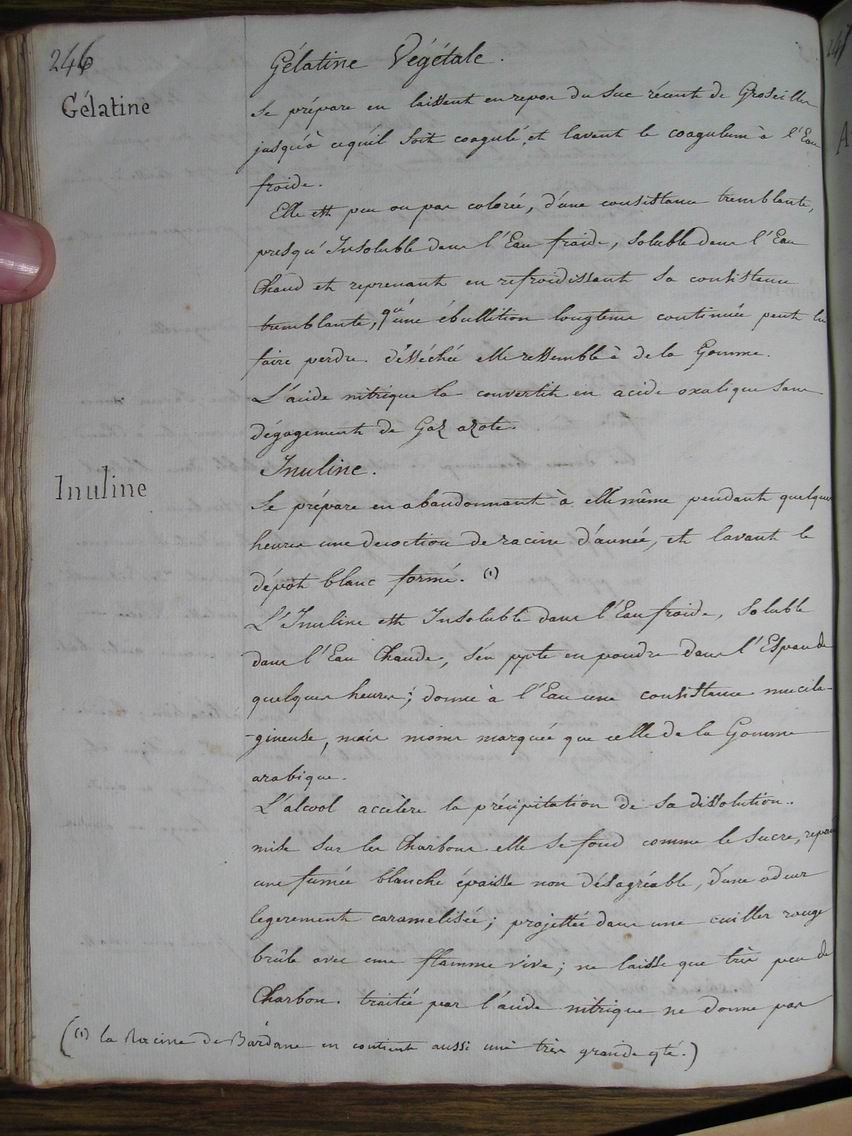 246
Gélatine Végétale.
Gélatine
Se prépare en laissant en repos du Suc récent de Groseilles
jusqu'à cequ'il soit coagulé, et lavant le coagulum à l'Eau
froide.
Elle est peu ou pas colorée, d'une consistance tremblante,
presqu'Insoluble dans l'Eau froide, soluble dans l'Eau
Chaud et reprenant en refroidissant sa consistance
tremblante, qu'une ébullition longtems continuée peut lui
faire perdre. désséchée elle ressemble à de la Gomme.
L'acide nitrique la convertit en acide oxalique sans
dégagement de Gaz azote.
Inuline.
Inuline
Se prépare en abandonnant à elle même pendant quelques
heures une decoction de racine d'aunée, et lavant le
dépot blanc formé. (1)
L'Inuline est Insoluble dans l'Eau froide, Soluble
dans l'Eau Chaude, s'en ppte en poudre dans l'Espace de
quelques heures; donne à l'Eau une consistance mucila-
-gineuse, mais moins marquée que celle de la Gomme
arabique.
L'alcool accelère la précipitation de sa dissolution.
mise sur les Charbons elle se fond comme le sucre, repand
une fumée blanche épaisse non désagréable, d'une odeur
legerement caramelisée; projettée dans une cuiller rouge
brûle avec une flamme vive; ne laisse que très peu de
Charbon. traitée par l'acide nitrique ne donne pas
((1) la Racine de Bardane en contient aussi une très grande qté.)